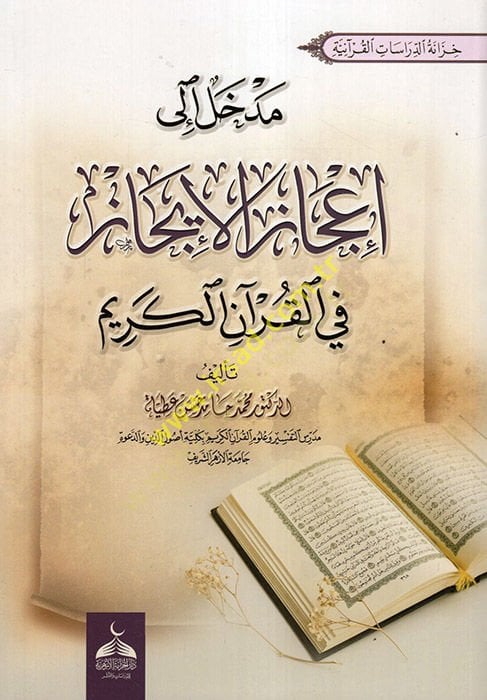 خِزَانَةُ الدِّرَاسَاتِ الْقُرْآنِيَّةِ
مَدْخَل إِلى
إِعْجَازِ الإِيجَازِ
فِي الْقُرْآنِ الْكَرِيمِ
تَأْلِيفُ
الدكتور محمد حامد محسن عطية
مدرس التفسير وعلوم القرآن الكريم بكلية أصول الدين والدعوة
جامعة الأزهر الشريف
دار الخزانة الأزهرية
للدراسات والنشر